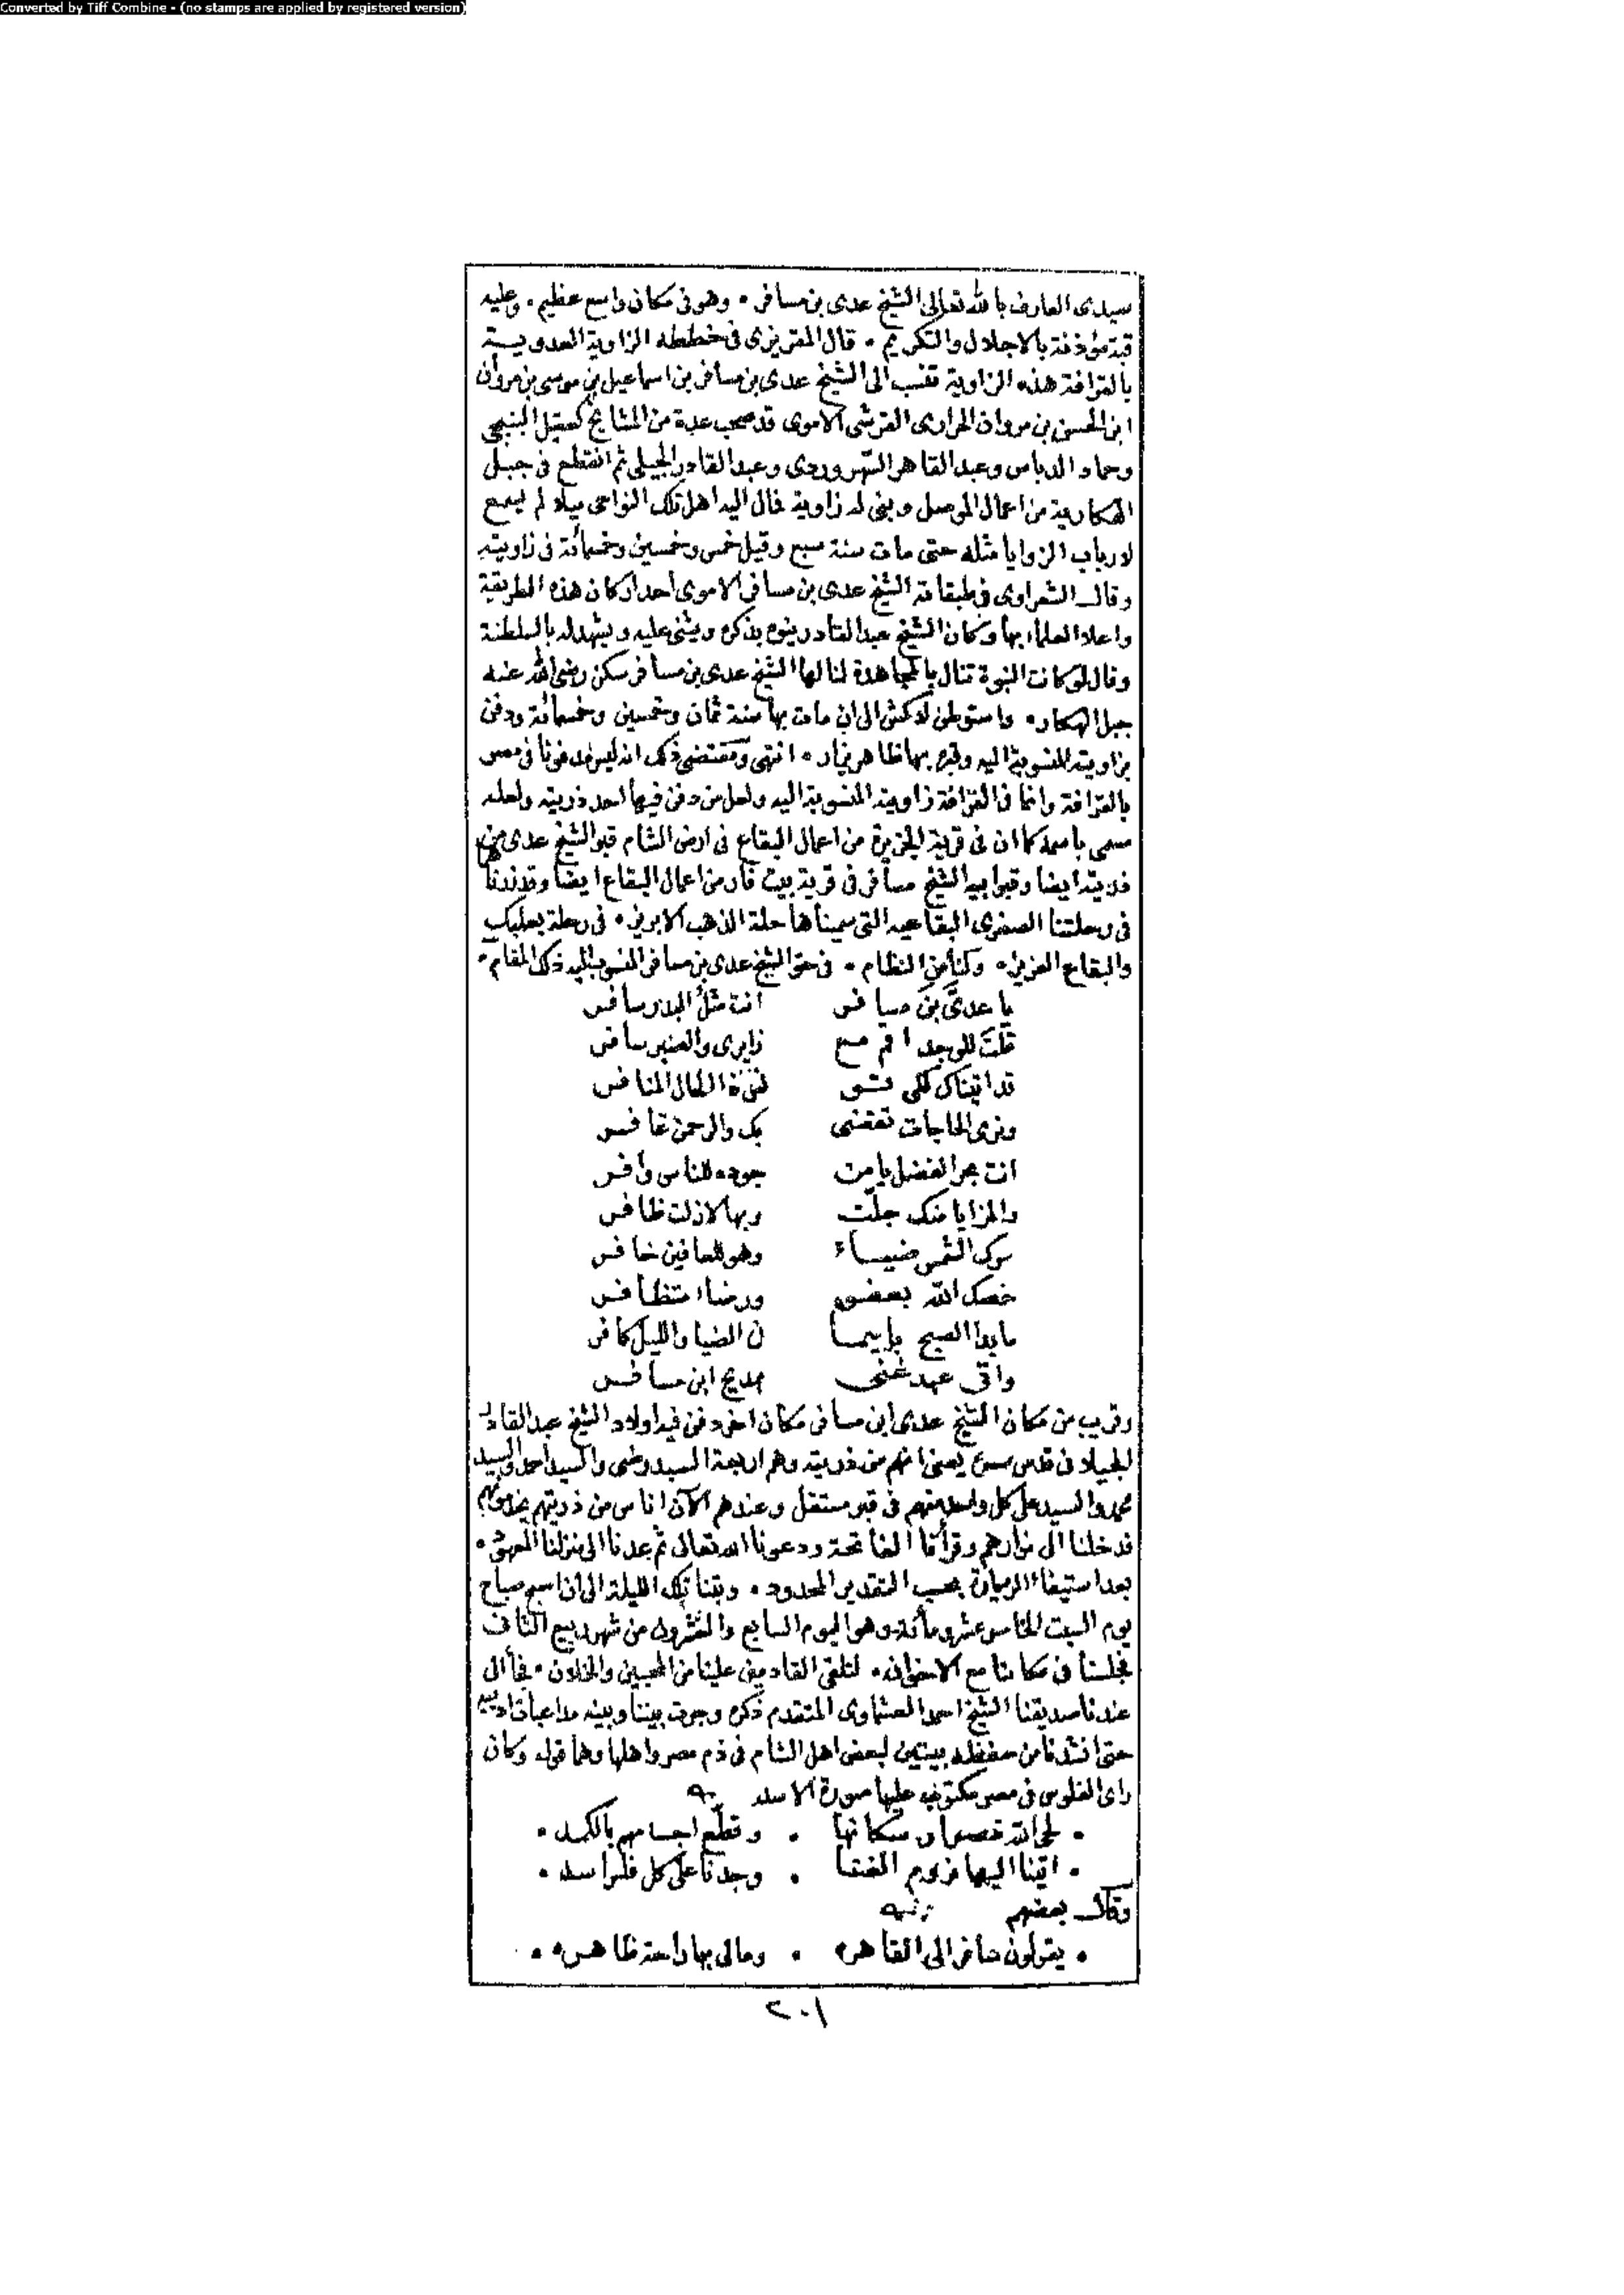 Converted by Tiff Combine - (no stamps are applied by registered version)
سيدى العارف بالله تعالى الشيخ عدى بن مسافر • وهو فى مكان واسع عظيم • وعليه
قبة مؤذنة بالاجلال والتكريم • قال المقريزى فى خططه الزاوية العدوية
بالقرافة هذه الزاوية تنسب الى الشيخ عدى بن مسافر بن اسماعيل بن موسى بن مروان
ابن الحسن بن مروان الهكارى القرشى الاموى قد صحب عدة من المشايخ كعقيل المنبجى
وحماد الدباس وعبد القاهر السهروردى وعبد القادر الجيلى ثم انقطع فى جبل
الهكارية من اعمال الموصل وبنى له زاوية فمال اليه اهل تلك النواحى ميلا لم يسمع
لارباب الزوايا مثله حتى مات سنة سبع وقيل خمس وخمسين وخمسمائة فى زاويته
وقال الشعراوى فى طبقاته الشيخ عدى بن مسافر الاموى احد اركان هذه الطريقة
واعلا العلماء بها وكان الشيخ عبد القادر ينوه بذكره ويثنى عليه ويشهد له بالسلطنة
وقال لو كانت النبوة تنال بالمجاهدة لنالها الشيخ عدى بن مسافر سكن رضى الله عنه
جبل الهكار • واستوطن لالش الى ان مات بها سنة ثمان وخمسين وخمسمائة ودفن
بزاويته المنسوبة اليه وقبره بها ظاهر يزار • انتهى ومقتضى ذلك انه ليس مدفونا فى مصر
بالقرافة وانما فى القرافة زاويته المنسوبة اليه ولعل من دفن فيها احد ذريته ولعله
مسمى باسمه كما ان فى قرية الجزيرة من اعمال البقاع فى ارض الشام قبر الشيخ عدى من
ذريته ايضا وقبر ابيه الشيخ مسافر فى قرية بيت فار من اعمال البقاع ايضا وقد زرناهما
فى رحلتنا الصغرى البقاعيه التى سميناها حلة الذهب الابريز • فى رحلة بعلبك
والبقاع العزيز • وقلنا من النظام • فى حق الشيخ عدى بن مسافر المنسوب اليه ذلك المقام •
يا عدى بن مسافر انت مثل البدر سافر
قلت للوجد اقم مع زايرى والصبر سافر
قد اتيناك لكى نشق
ونرى الحاجات تقضى بك والرحمن غافر
انت بحر الفضل يا من جوده للناس وافر
والمزايا منك جلت وبها لازلت ظافر
سرك الشمس ضياء وهو للعافين خافر
خصك الله بعفو ورضاء متظافر
ما بدا الصبح بايما ن الضيا والليل كافر
واتى عبد غنى بمديح ابن مسافر
وقريب من مكان الشيخ عدى ابن مسافر مكان اخر دفن فيه اولاد الشيخ عبد القادر
الجيلانى قدس سره يعنى انهم من ذريته وهم اربعة السيد رضى والسيد احمد والسيد
محمد والسيد على كل واحد منهم فى قبر مستقل وعندهم الآن اناس من ذريتهم يخدمونهم
فدخلنا الى مزارهم وقرأنا الفاتحة ودعونا الله تعالى ثم عدنا الى منزلنا المعهود •
بعد استيفاء الزيارة بحسب التقدير المحدود • وبتنا تلك الليلة الى ان اسبح صباح
يوم السبت الخامس عشر ومائة وهو اليوم السابع والعشرون من شهر ربيع الثانى
فجلسنا فى مكاننا مع الاخوان • لتلقى القادمين علينا من المحبين والخلان • فجأ الى
عندنا صديقنا الشيخ احمد العشماوى المتقدم ذكره وجرت بيننا وبينه مداعبات ادبيه
حتى انشدنا من حفظه بيتين لبعض اهل الشام فى ذم مصر واهلها وهما قوله وكان
راى الفلوس فى مصر مكتوب عليها صورة الاسد
• لحى الله مصرا وسكانها • وقطع اجسامهم بالكبد •
• اتينا اليها نروم الغنا • وجدنا على كل فلس اسد •
وقال بعضهم
• يقولون سافر الى القاهره • ومالى بها راحة ظاهره •
٢٠١